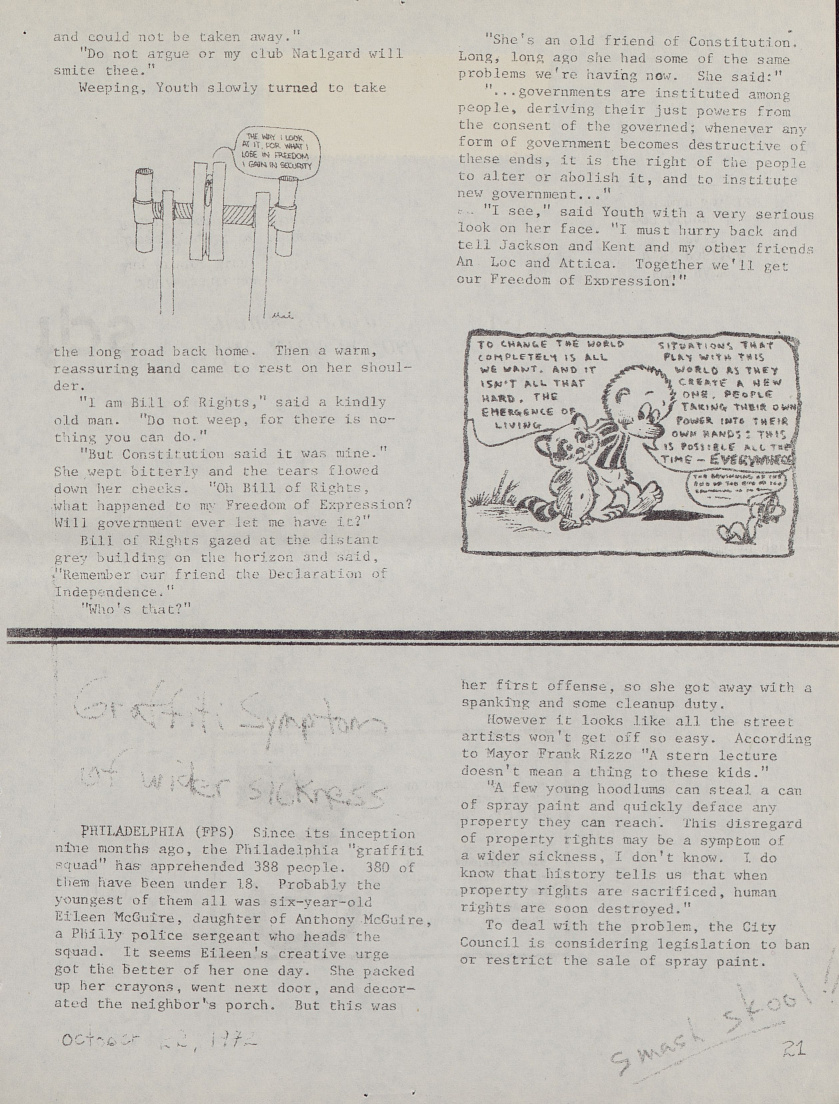 and could not be taken away."
"Do not argue or my club Natlgard will
smite thee."
Weeping, Youth slowly turned to take
THE WAY I LOOK
AT IT, FOR WHAT I
LOSE IN FREEDOM
I GAIN IN SECURITY
the long road back home. Then a warm,
reassuring hand came to rest on her shoul-
der.
"I am Bill of Rights," said a kindly
old man. "Do not weep, for there is no-
thing you can do."
"But Constitution said it was mine."
She wept bitterly and the tears flowed
down her cheeks. "Oh Bill of Rights,
what happened to my Freedom of Expression?
Will government ever let me have it?"
Bill of Rights gazed at the distant
grey building on the horizon and said,
"Remember our friend the Declaration of
Independence."
"Who's that?"
"She's an old friend of Constitution.
Long, long ago she had some of the same
problems we're having now. She said:"
"...governments are instituted among
people, deriving their just powers from
the consent of the governed; whenever any
form of government becomes destructive of
these ends, it is the right of the people
to alter or abolish it, and to institute
new government..."
"I see," said Youth with a very serious
look on her face. "I must hurry back and
tell Jackson and Kent and my other friends
An Loc and Attica. Together we'll get
our Freedom of Expression!"
TO CHANGE THE WORLD
COMPLETELY IS ALL
WE WANT. AND IT
ISN'T ALL THAT
HARD. THE
EMERGENCE OF
LIVING
SITUATIONS THAT
PLAY WITH THIS
WORLD AS THEY
CREATE A NEW
ONE. PEOPLE
TAKING THEIR OWN
POWER INTO THEIR
OWN HANDS: THIS
IS POSSIBLE ALL THE
TIME — EVERYWHERE
THE BEGINNING OF THE
END OF THE END OF THE
Graffiti Symptom
of wider sickness
PHILADELPHIA (FPS) Since its inception
nine months ago, the Philadelphia "graffiti
squad" has apprehended 388 people. 380 of
them have been under 18. Probably the
youngest of them all was six-year-old
Eileen McGuire, daughter of Anthony McGuire,
a Philly police sergeant who heads the
squad. It seems Eileen's creative urge
got the better of her one day. She packed
up her crayons, went next door, and decor-
ated the neighbor's porch. But this was
her first offense, so she got away with a
spanking and some cleanup duty.
However it looks like all the street
artists won't get off so easy. According
to Mayor Frank Rizzo "A stern lecture
doesn't mean a thing to these kids."
"A few young hoodlums can steal a can
of spray paint and quickly deface any
property they can reach. This disregard
of property rights may be a symptom of
a wider sickness, I don't know. I do
know that history tells us that when
property rights are sacrificed, human
rights are soon destroyed."
To deal with the problem, the City
Council is considering legislation to ban
or restrict the sale of spray paint.
october 22, 1972
Smash Skool!!
21